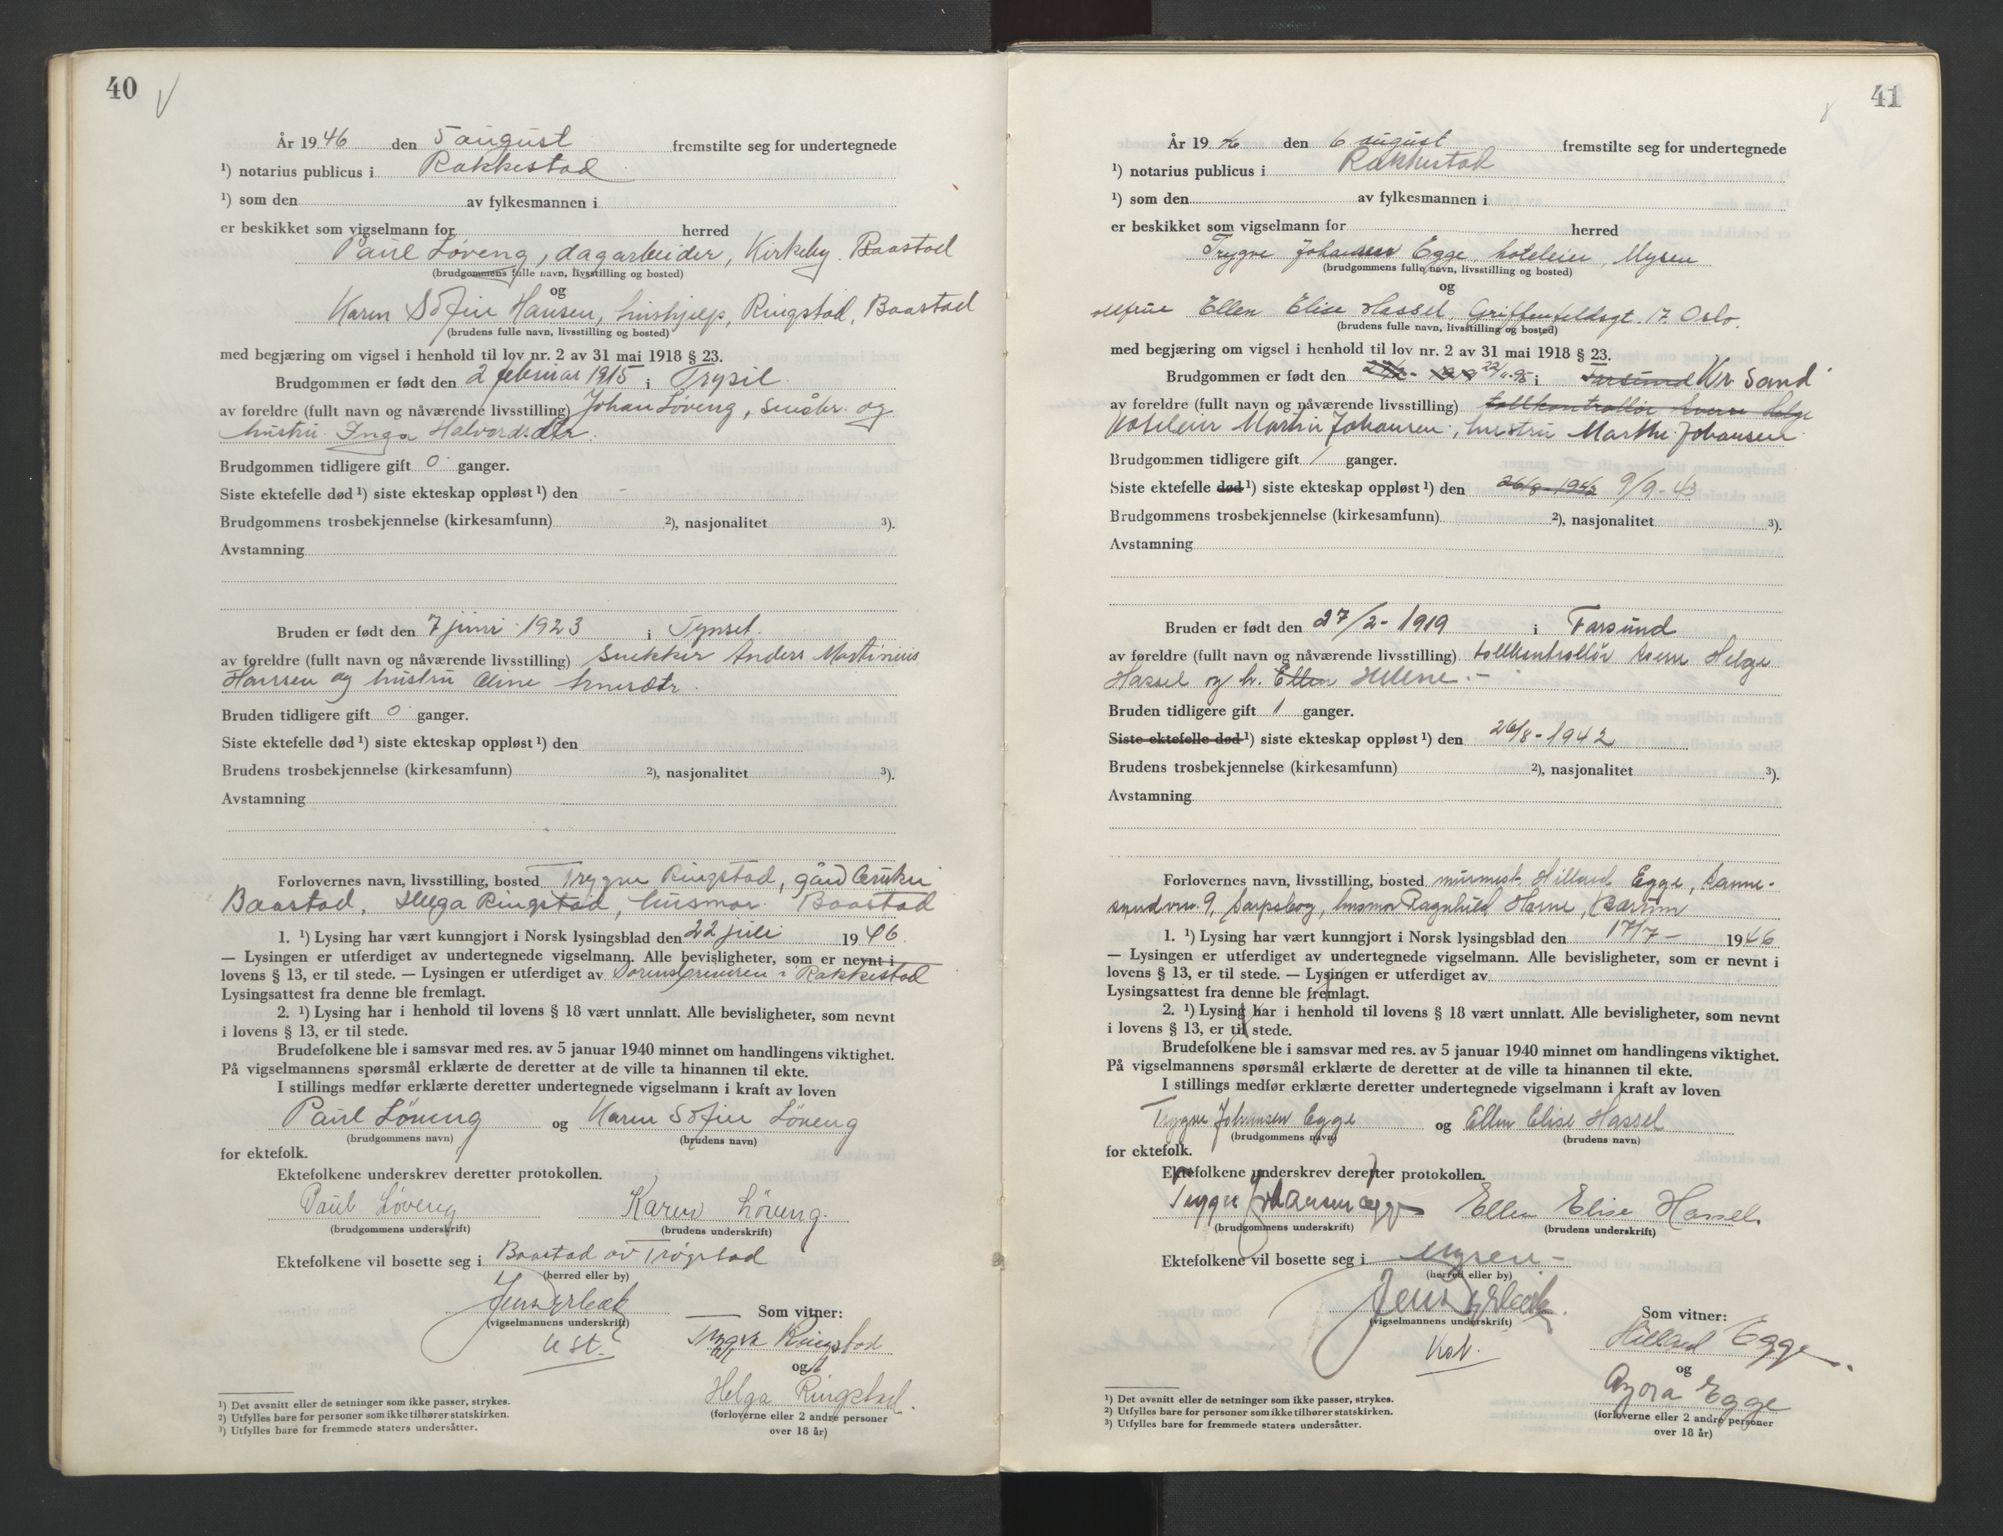 40
År 1946 den 5 august fremstilte seg for undertegnede
¹) notarius publicus i Rakkestad
¹) som den av fylkesmannen i
er beskikket som vigselmann for herred
Paul Løveng, dagarbeider, Kirkeby. Baastad
(brudgommens fulle navn, livsstilling og bosted)
og
Karen Sofie Hansen, hushjelp, Ringstad, Baastad
(brudens fulle navn, livsstilling og bosted)
med begjæring om vigsel i henhold til lov nr. 2 av 31 mai 1918 § 23.
Brudgommen er født den 2 februar 1915 i Trysil.
av foreldre (fullt navn og nåværende livsstilling) Johan Løveng, småbr. og
hustru Inga Halvordsdtr.
Brudgommen tidligere gift 0 ganger.
Siste ektefelle død ¹) siste ekteskap oppløst ¹) den -
Brudgommens trosbekjennelse (kirkesamfunn) ²), nasjonalitet ³).
Avstamning
Bruden er født den 7 juni 1923 i Tynset.
av foreldre (fullt navn og nåværende livsstilling) snekker Anders Martinius
Hansen og hustru Oline
Bruden tidligere gift 0 ganger.
Siste ektefelle død ¹) siste ekteskap oppløst ¹) den
Brudens trosbekjennelse (kirkesamfunn) ²), nasjonalitet ³).
Avstamning
Forlovernes navn, livsstilling, bosted Trygve Ringstad, gårdbruker
Baastad, Helga Ringstad, husmor. Baastad
1. ¹) Lysing har vært kunngjort i Norsk lysingsblad den 22 juli 1946.
— Lysingen er utferdiget av undertegnede vigselmann. Alle bevisligheter, som er nevnt i
lovens § 13, er til stede. — Lysingen er utferdiget av Sorenskriveren i Rakkestad
Lysingsattest fra denne ble fremlagt.
2. ¹) Lysing har i henhold til lovens § 18 vært unnlatt. Alle bevisligheter, som nevnt
i lovens § 13, er til stede.
Brudefolkene ble i samsvar med res. av 5 januar 1940 minnet om handlingens viktighet.
På vigselmannens spørsmål erklærte de deretter at de ville ta hinannen til ekte.
I stillings medfør erklærte deretter undertegnede vigselmann i kraft av loven
Paul Löveng og Karen Sofie Löveng
(brudgommens navn) (brudens navn)
for ektefolk.
Ektefolkene underskrev deretter protokollen.
Paul Løveng Karen Löveng.
(brudgommens underskrift) (brudens underskrift)
Ektefolkene vil bosette seg i Baastad av Trøgstad
(herred eller by)
Som vitner:
(vigselmannens underskrift)
Trygve Ringstad
og
Helga Ringstad.
(forloverne eller 2 andre personer
over 18 år)
¹) Det avsnitt eller de setninger som ikke passer, strykes.
²) Utfylles bare for personer som ikke tilhører statskirken.
³) Utfylles bare for fremmede staters undersåtter.
41
År 1946 den 6 august fremstilte seg for undertegnede
¹) notarius publicus i Rakkestad
¹) som den av fylkesmannen i
er beskikket som vigselmann for herred
Trygve Johansen Egge, hoteleier, Mysen
(brudgommens fulle navn, livsstilling og bosted)
og
Ellen Elise Hassel, Griffenfeldsgt. 17. Oslo.
(brudens fulle navn, livsstilling og bosted)
med begjæring om vigsel i henhold til lov nr. 2 av 31 mai 1918 § 23.
Brudgommen er født den i Farsund Kr. Sand
av foreldre (fullt navn og nåværende livsstilling) tollkontrollør Sverre Helge
hoteleier Martin Johansen, hustru Marthe Johansen
Brudgommen tidligere gift 1 ganger.
Siste ektefelle død ¹) siste ekteskap oppløst ¹) den 26/8-1942 9/9-43
Brudgommens trosbekjennelse (kirkesamfunn) ²), nasjonalitet ³).
Avstamning
Bruden er født den 27/2-1919 i Farsund
av foreldre (fullt navn og nåværende livsstilling) tollkontrollør Sverre Helge
Hassel og h. Ellen Helene. -
Bruden tidligere gift 1 ganger.
Siste ektefelle død ¹) siste ekteskap oppløst ¹) den 26/8-1942
Brudens trosbekjennelse (kirkesamfunn) ²), nasjonalitet ³).
Avstamning
Forlovernes navn, livsstilling, bosted murmest. Hillard Egge, Sanne-
9, Sarpsborg, husmor Ragnhild Horne, Bærum
1. ¹) Lysing har vært kunngjort i Norsk lysingsblad den 17/7- 1946
— Lysingen er utferdiget av undertegnede vigselmann. Alle bevisligheter, som er nevnt i
lovens § 13, er til stede. — Lysingen er utferdiget av
Lysingsattest fra denne ble fremlagt.
2. ¹) Lysing har i henhold til lovens § 18 vært unnlatt. Alle bevisligheter, som nevnt
i lovens § 13, er til stede.
Brudefolkene ble i samsvar med res. av 5 januar 1940 minnet om handlingens viktighet.
På vigselmannens spørsmål erklærte de deretter at de ville ta hinannen til ekte.
I stillings medfør erklærte deretter undertegnede vigselmann i kraft av loven
Trygve Johansen Egge og Ellen Elise Hassel
(brudgommens navn) (brudens navn)
for ektefolk.
Ektefolkene underskrev deretter protokollen.
Trygve Johansen Egge Ellen Elise Hassel.
(brudgommens underskrift) (brudens underskrift)
Ektefolkene vil bosette seg i Mysen -
(herred eller by)
Som vitner:
(vigselmannens underskrift)
Hillard Egge.
og
Azora Egge
(forloverne eller 2 andre personer
over 18 år)
¹) Det avsnitt eller de setninger som ikke passer, strykes.
²) Utfylles bare for personer som ikke tilhører statskirken.
³) Utfylles bare for fremmede staters undersåtter.